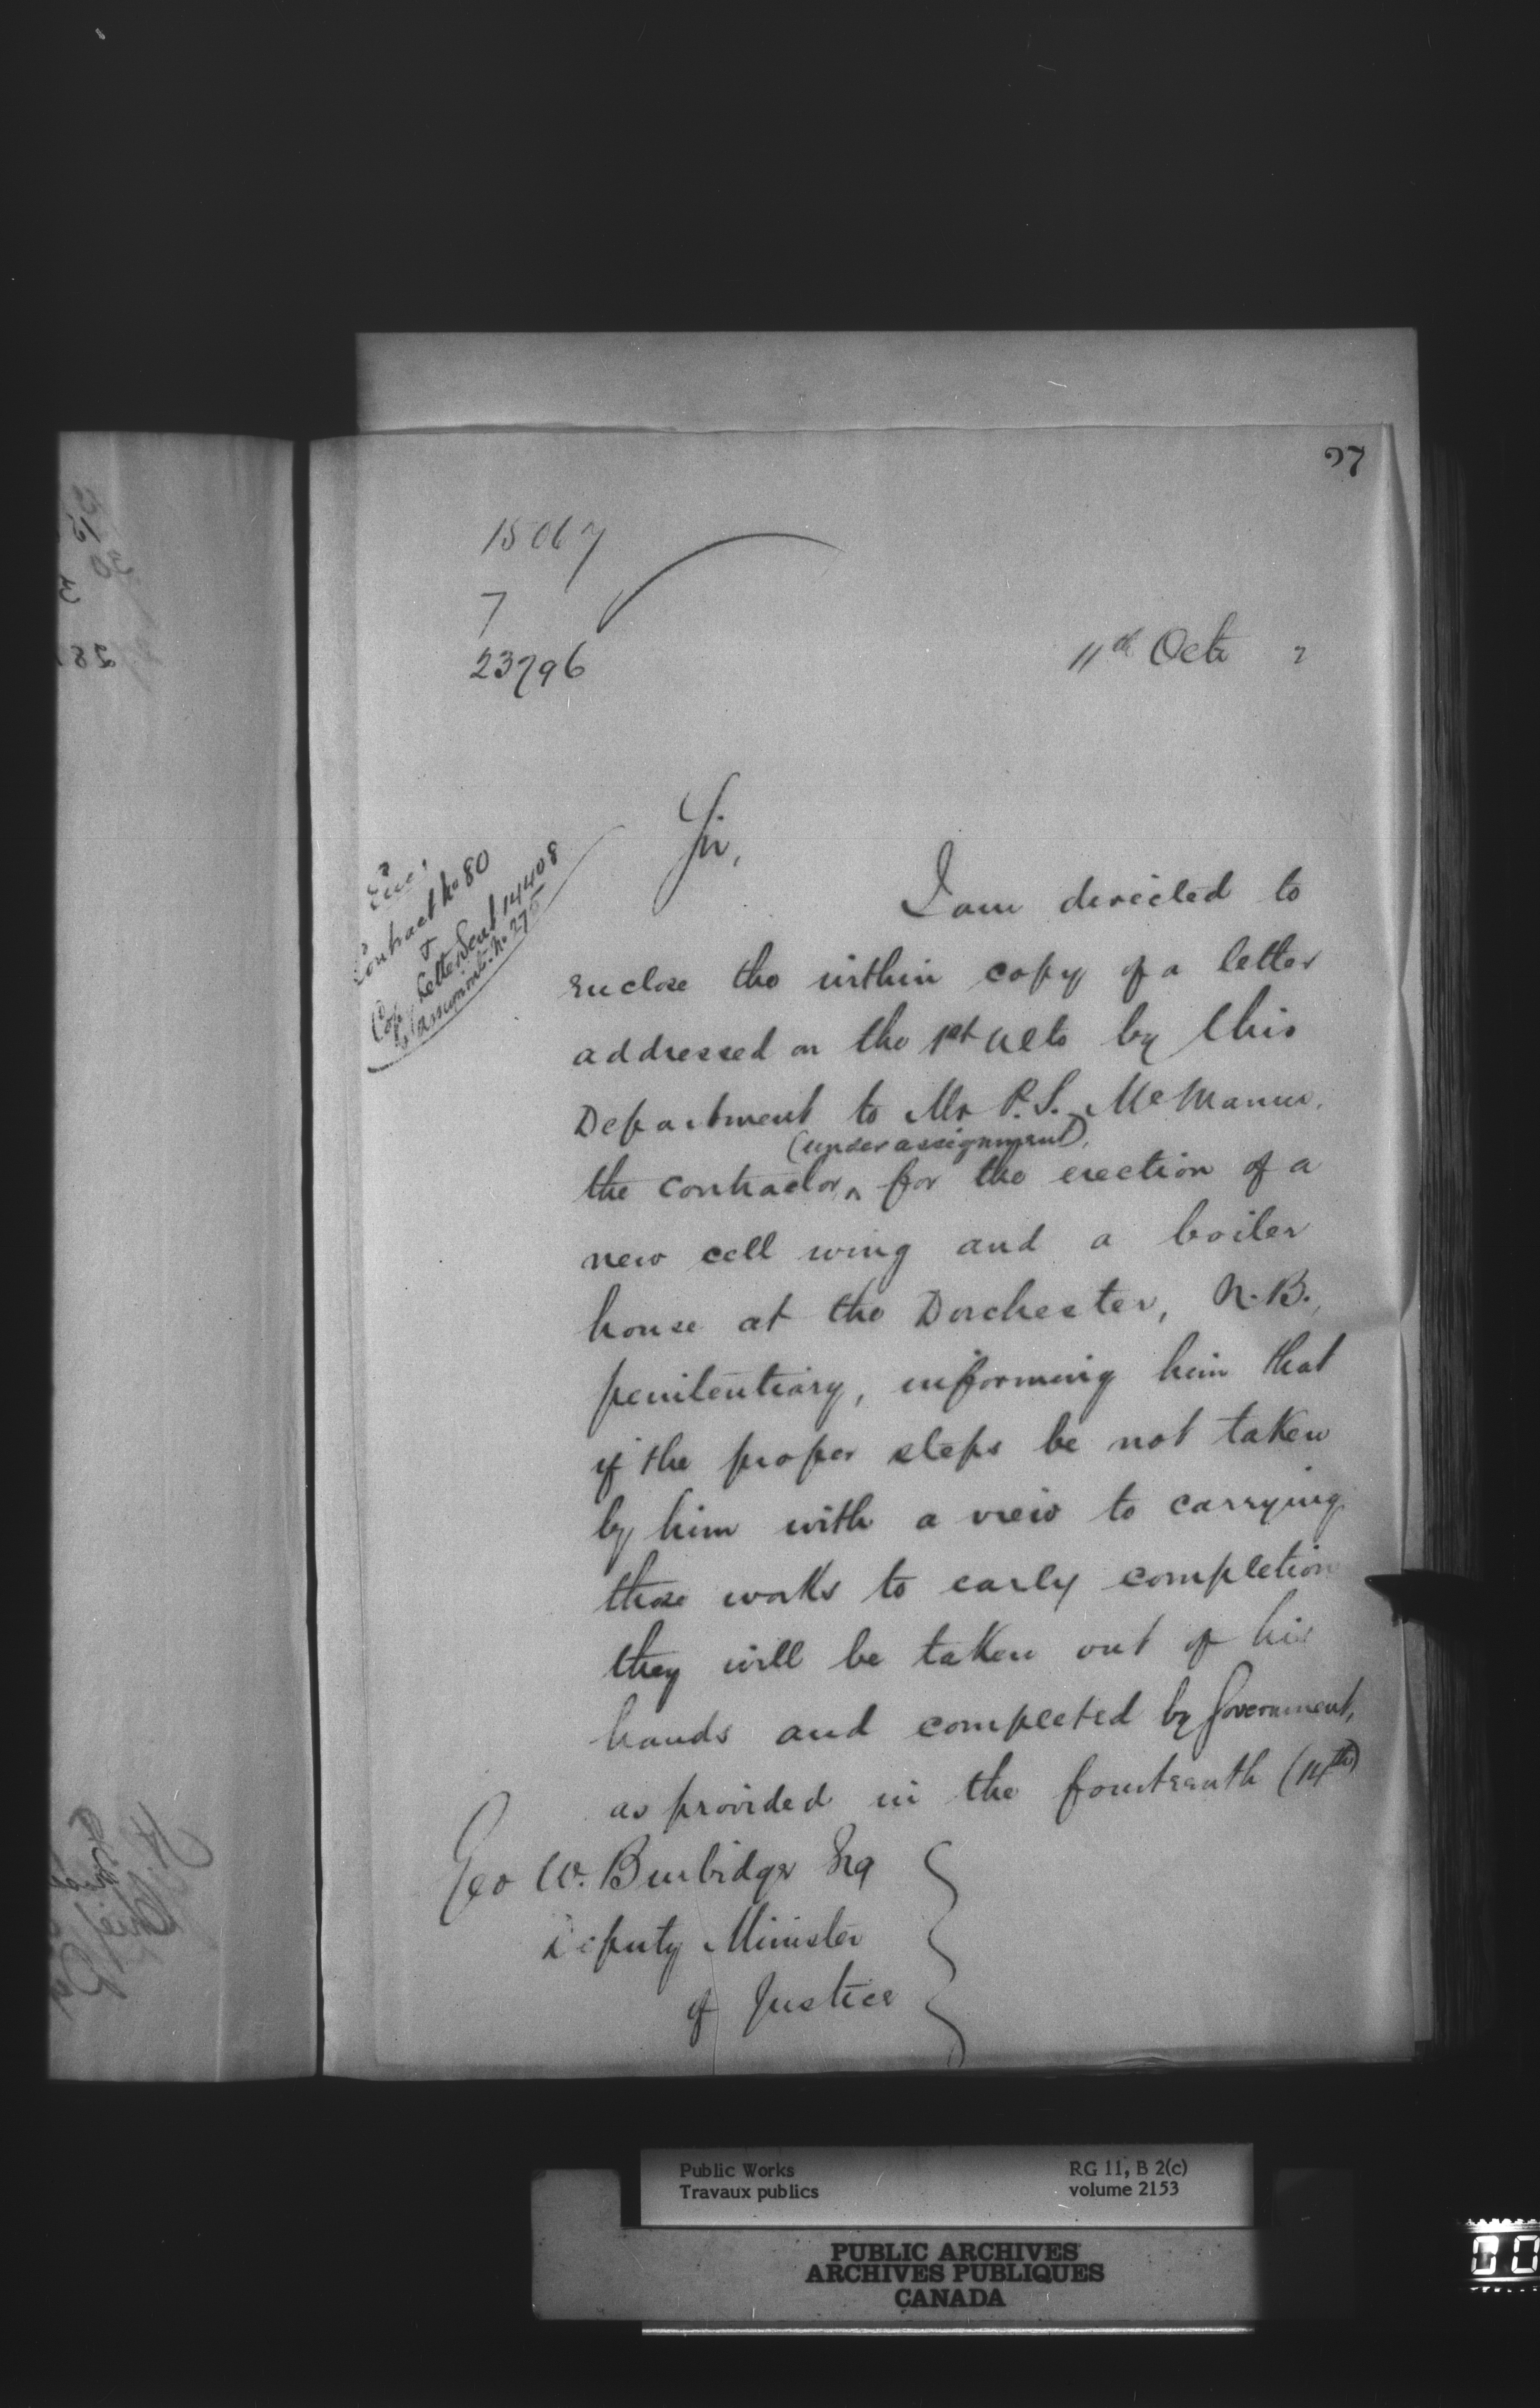 27
15067
7
23796
11th Octr 7
Enc.
Contract No 80
&
Copy Letter Sent 14408
& Assignmt. No 275
Sir,
I am directed to
enclose the within copy of a letter
addressed on the 1st ulto by this
Department to Mr P. S. McManus,
(under assignment),
the contractor ^ for the erection of a
new cell wing and a boiler
house at the Dorchester, N.B.,
penitentiary, informing him that
if the proper steps be not taken
by him with a view to carrying
those works to early completion
they will be taken out of his
hands and completed by Government,
as provided in the fourteenth (14th)
Geo W. Burbidge Esq
Deputy Minister
of Justice
Public Works
Travaux publics
RG 11, B 2(c)
volume 2153
PUBLIC ARCHIVES
ARCHIVES PUBLIQUES
CANADA
00